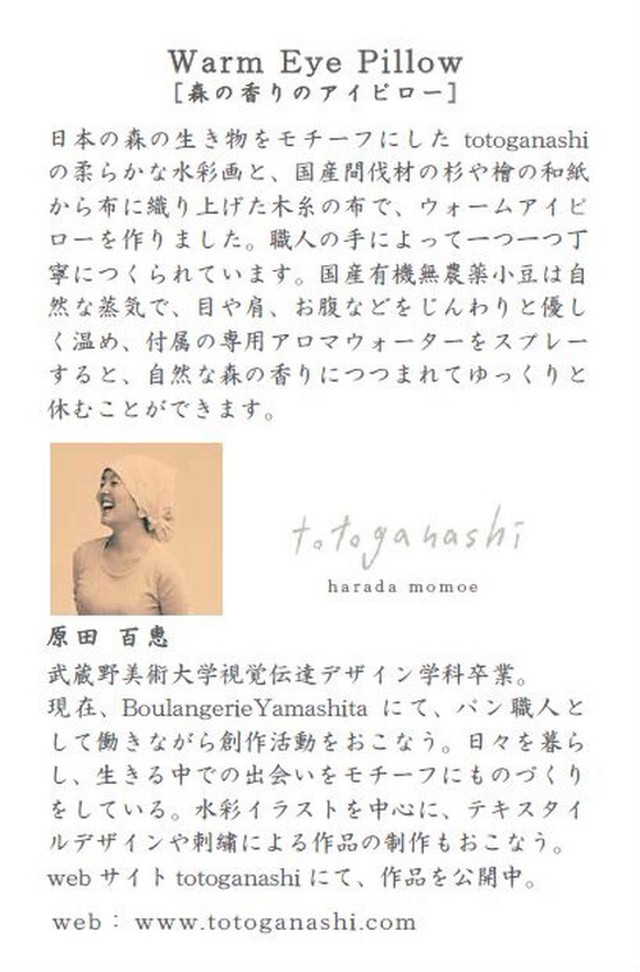 Warm Eye Pillow
[森の香りのアイピロー]
日本の森の生き物をモチーフにした totoganashi
の柔らかな水彩画と、国産間伐材の杉や檜の和紙
から布に織り上げた木糸の布で、ウォームアイピ
ローを作りました。職人の手によって一つ一つ丁
寧につくられています。国産有機無農薬小豆は自
然な蒸気で、目や肩、お腹などをじんわりと優し
く温め、付属の専用アロマウォーターをスプレー
すると、自然な森の香りにつつまれてゆっくりと
休むことができます。
totoganashi
harada momoe
原田 百恵
武蔵野美術大学視覚伝達デザイン学科卒業。
現在、BoulangerieYamashita にて、パン職人と
して働きながら創作活動をおこなう。日々を暮ら
し、生きる中での出会いをモチーフにものづくり
をしている。水彩イラストを中心に、テキスタイ
ルデザインや刺繍による作品の制作もおこなう。
web サイト totoganashi にて、作品を公開中。
web : www.totoganashi.com